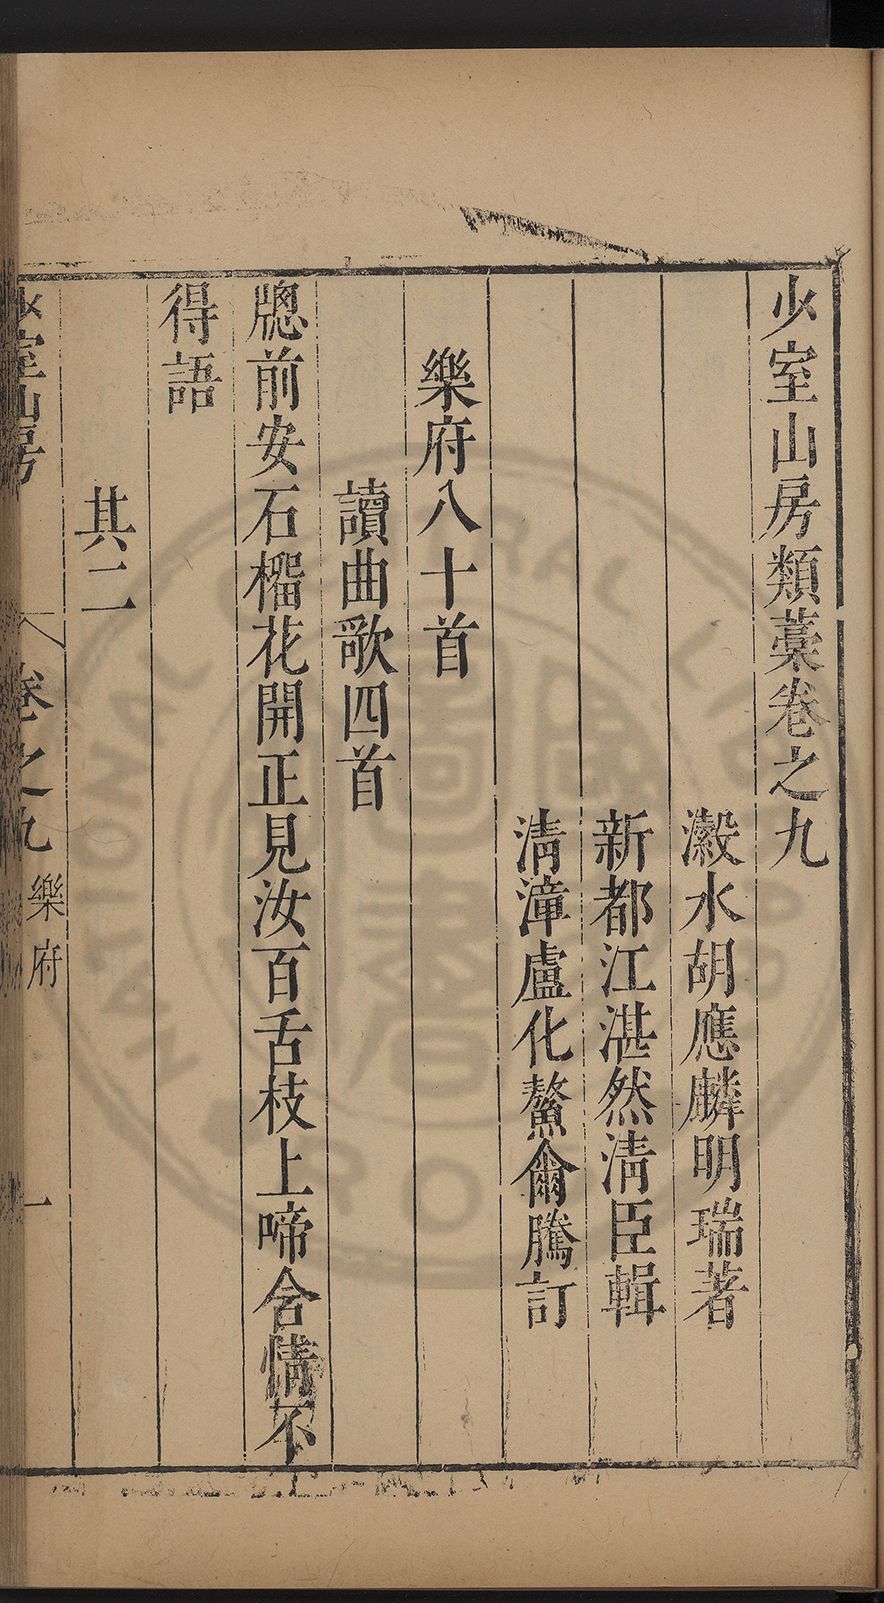 少室山房類藁卷之九
瀫水胡應麟明瑞著
新都江湛然清臣輯
清漳盧化鰲爾騰訂
樂府八十首
讀曲歌四首
牕前安石榴花開正見汝百舌枝上啼含情不
得語
其二
少室山房
卷之九
樂府
一